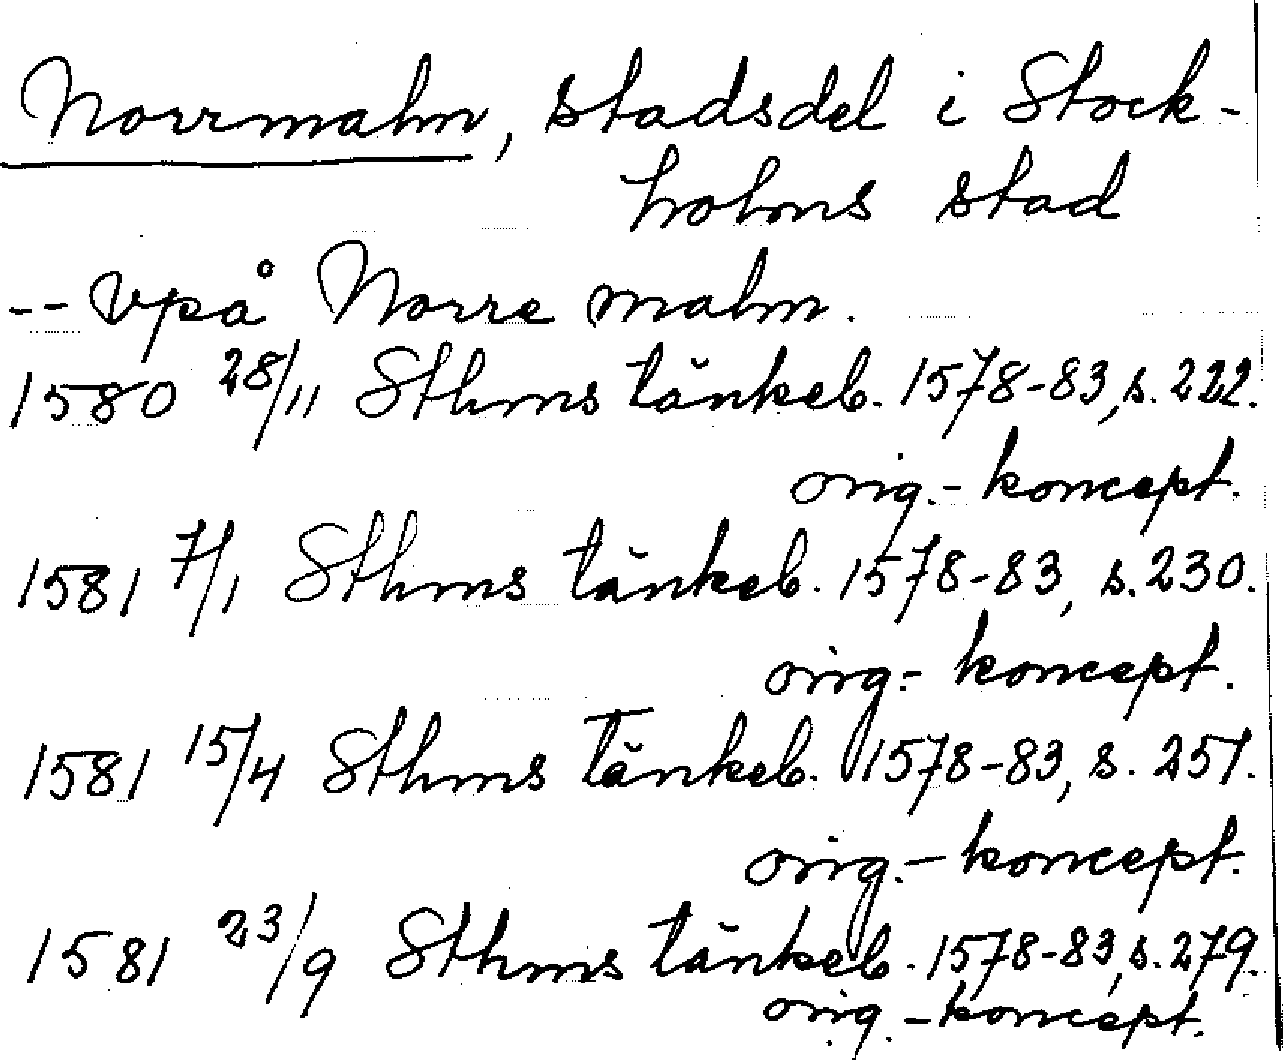 Norrmalm, stadsdel i Stock-
holms stad
-- vpå Norre malm.
1580 28/11 Sthms tänkeb. 1578-83, s. 222.
orig.-koncept.
1581 7/1 Sthms tänkeb. 1578-83, s. 230.
orig.-koncept.
1581 15/4 Sthms tänkeb. 1578-83, s. 257.
orig.-koncept.
1581 23/9 Sthms tänkeb. 1578-83, s. 279.
orig.-koncept.